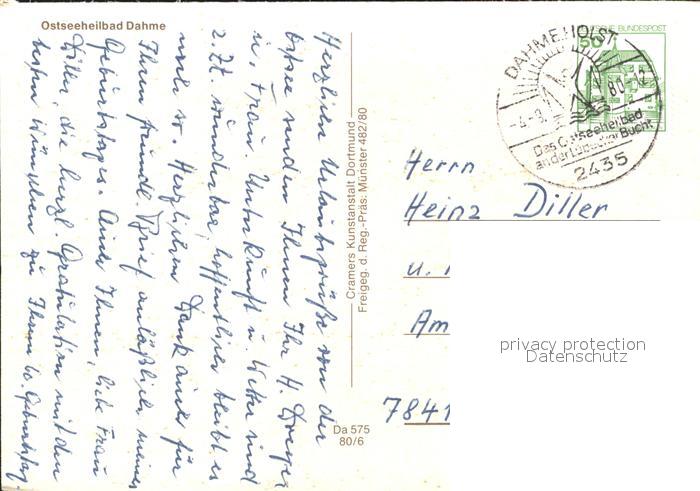 Ostseeheilbad Dahme
Herzliche Urlaubsgrüße von der
Ostsee senden Ihnen Ihr H. Dreyer
u. Frau. Unterkunft u. Wetter sind
z. Zt. wunderbar, hoffentlich bleibt es
noch so. Herzlichen Dank auch für
Ihren freundl. Brief anläßlich meines
Geburtstages. Auch Ihnen, liebe Frau
Diller, die herzl. Gratulation mit den
besten Wünschen zu Ihrem 60. Geburtstag.
Cramers Kunstanstalt Dortmund
Freigeg. d. Reg.-Präs. Münster 482/80
Da 575
80/6
DEUTSCHE BUNDESPOST
50
DAHME, HOLST
80-12
Das Ostseeheilbad
an der Lübecker Bucht
2435
Herrn
Heinz Diller
u.
Am
7841
privacy protection
Datenschutz